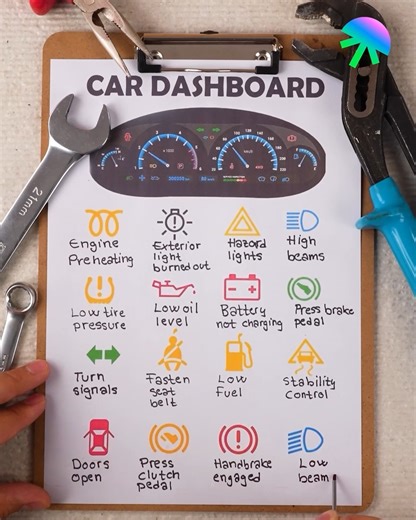 CAR DASHBOARD
21mm
Engine
Preheating
Exterior
light
burned out
Hazard
lights
High
beams
Low tire
pressure
Low oil
level
Battery
not charging
Press brake
pedal
Turn
signals
Fasten
seat
belt
Low
Fuel
Stability
Control
Doors
open
Press
clutch
pedal
Handbrake
engaged
Low
beam